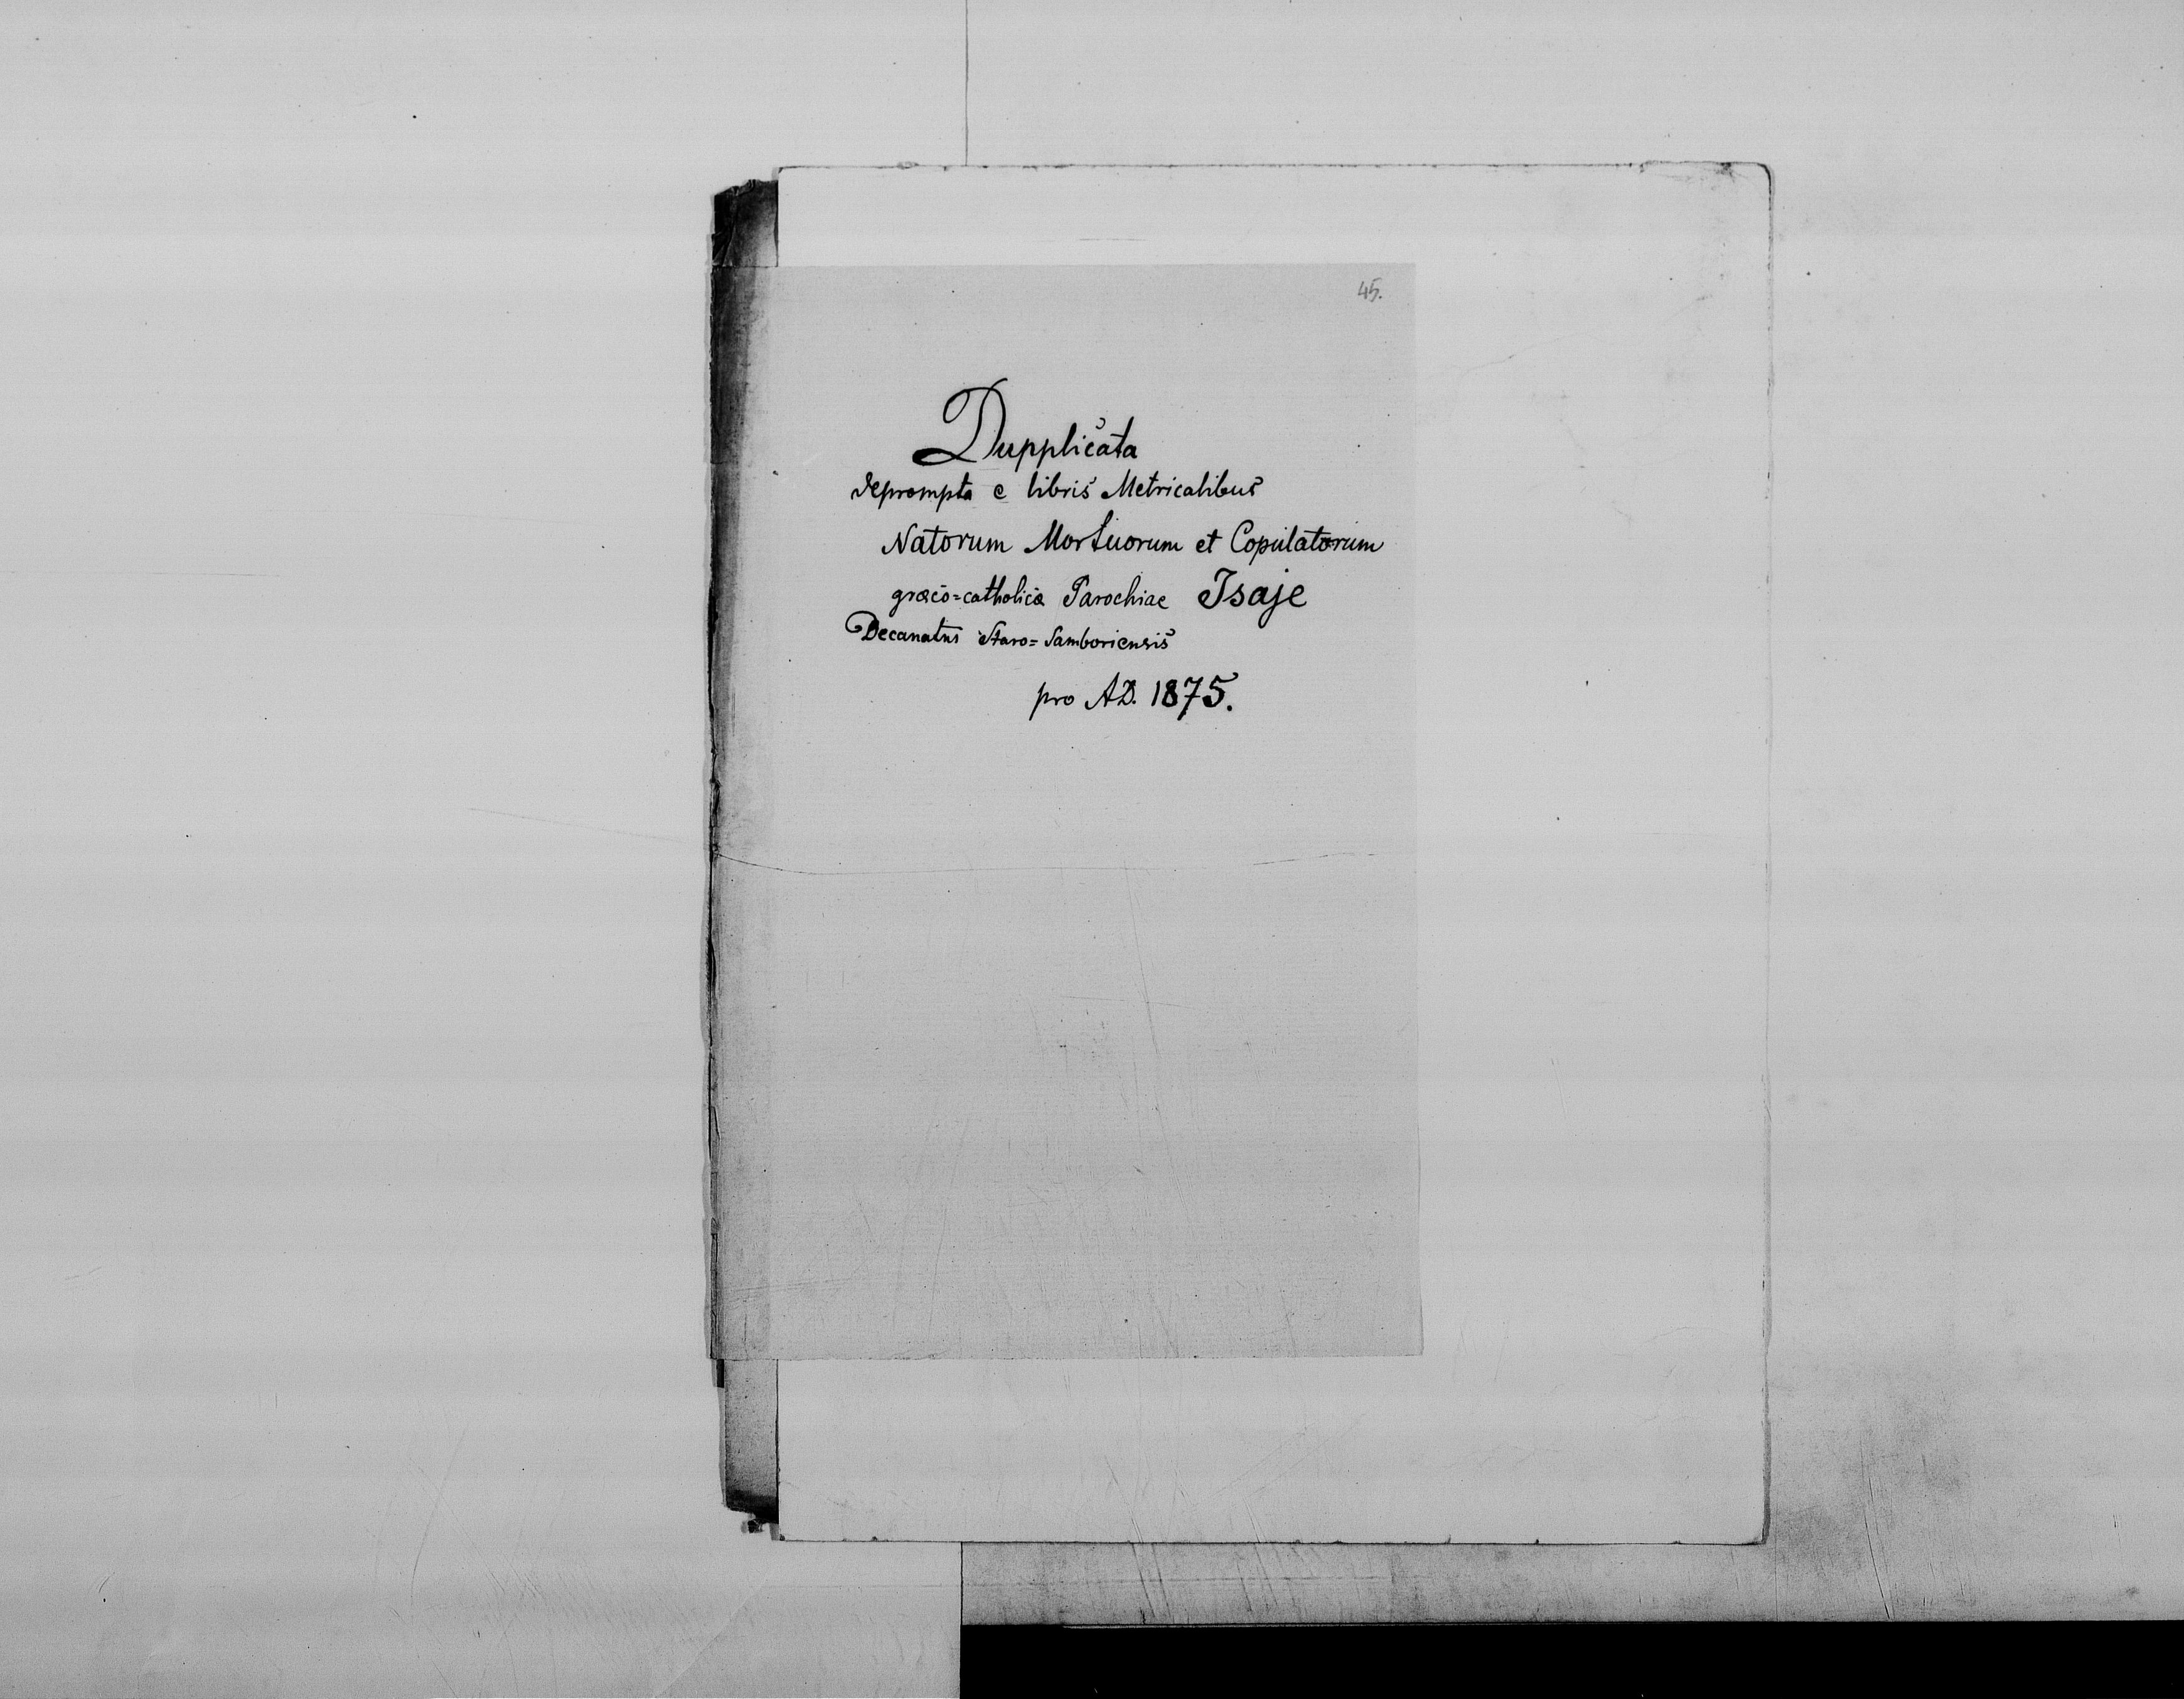 45.
Dupplicata
deprompta e libris Metricalibus
Natorum Mortuorum et Copulatorum
græco=catholicæ Parochiae Isaje
Decanatus Staro=Samboriensis
pro AD. 1875.